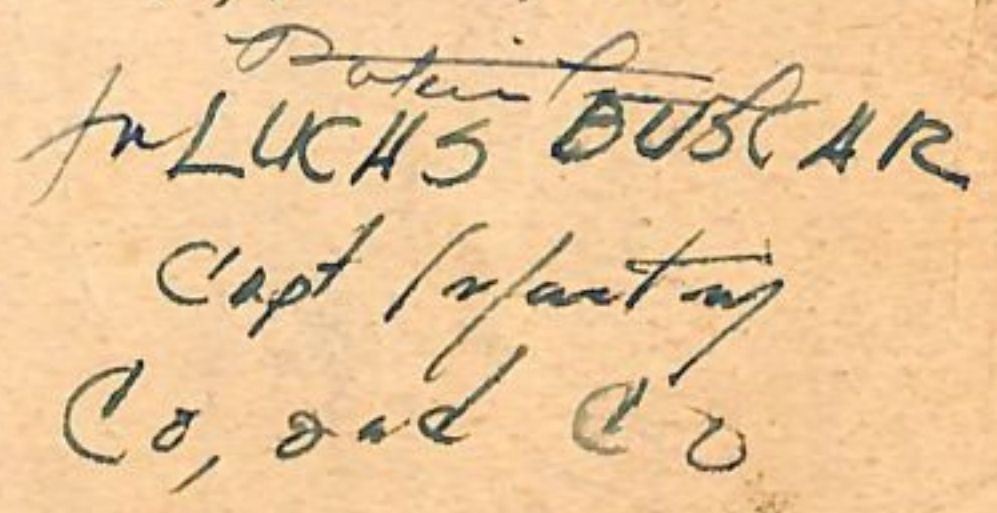 for LUCAS BUSCAR
Capt Infantry
Co, 2nd Co